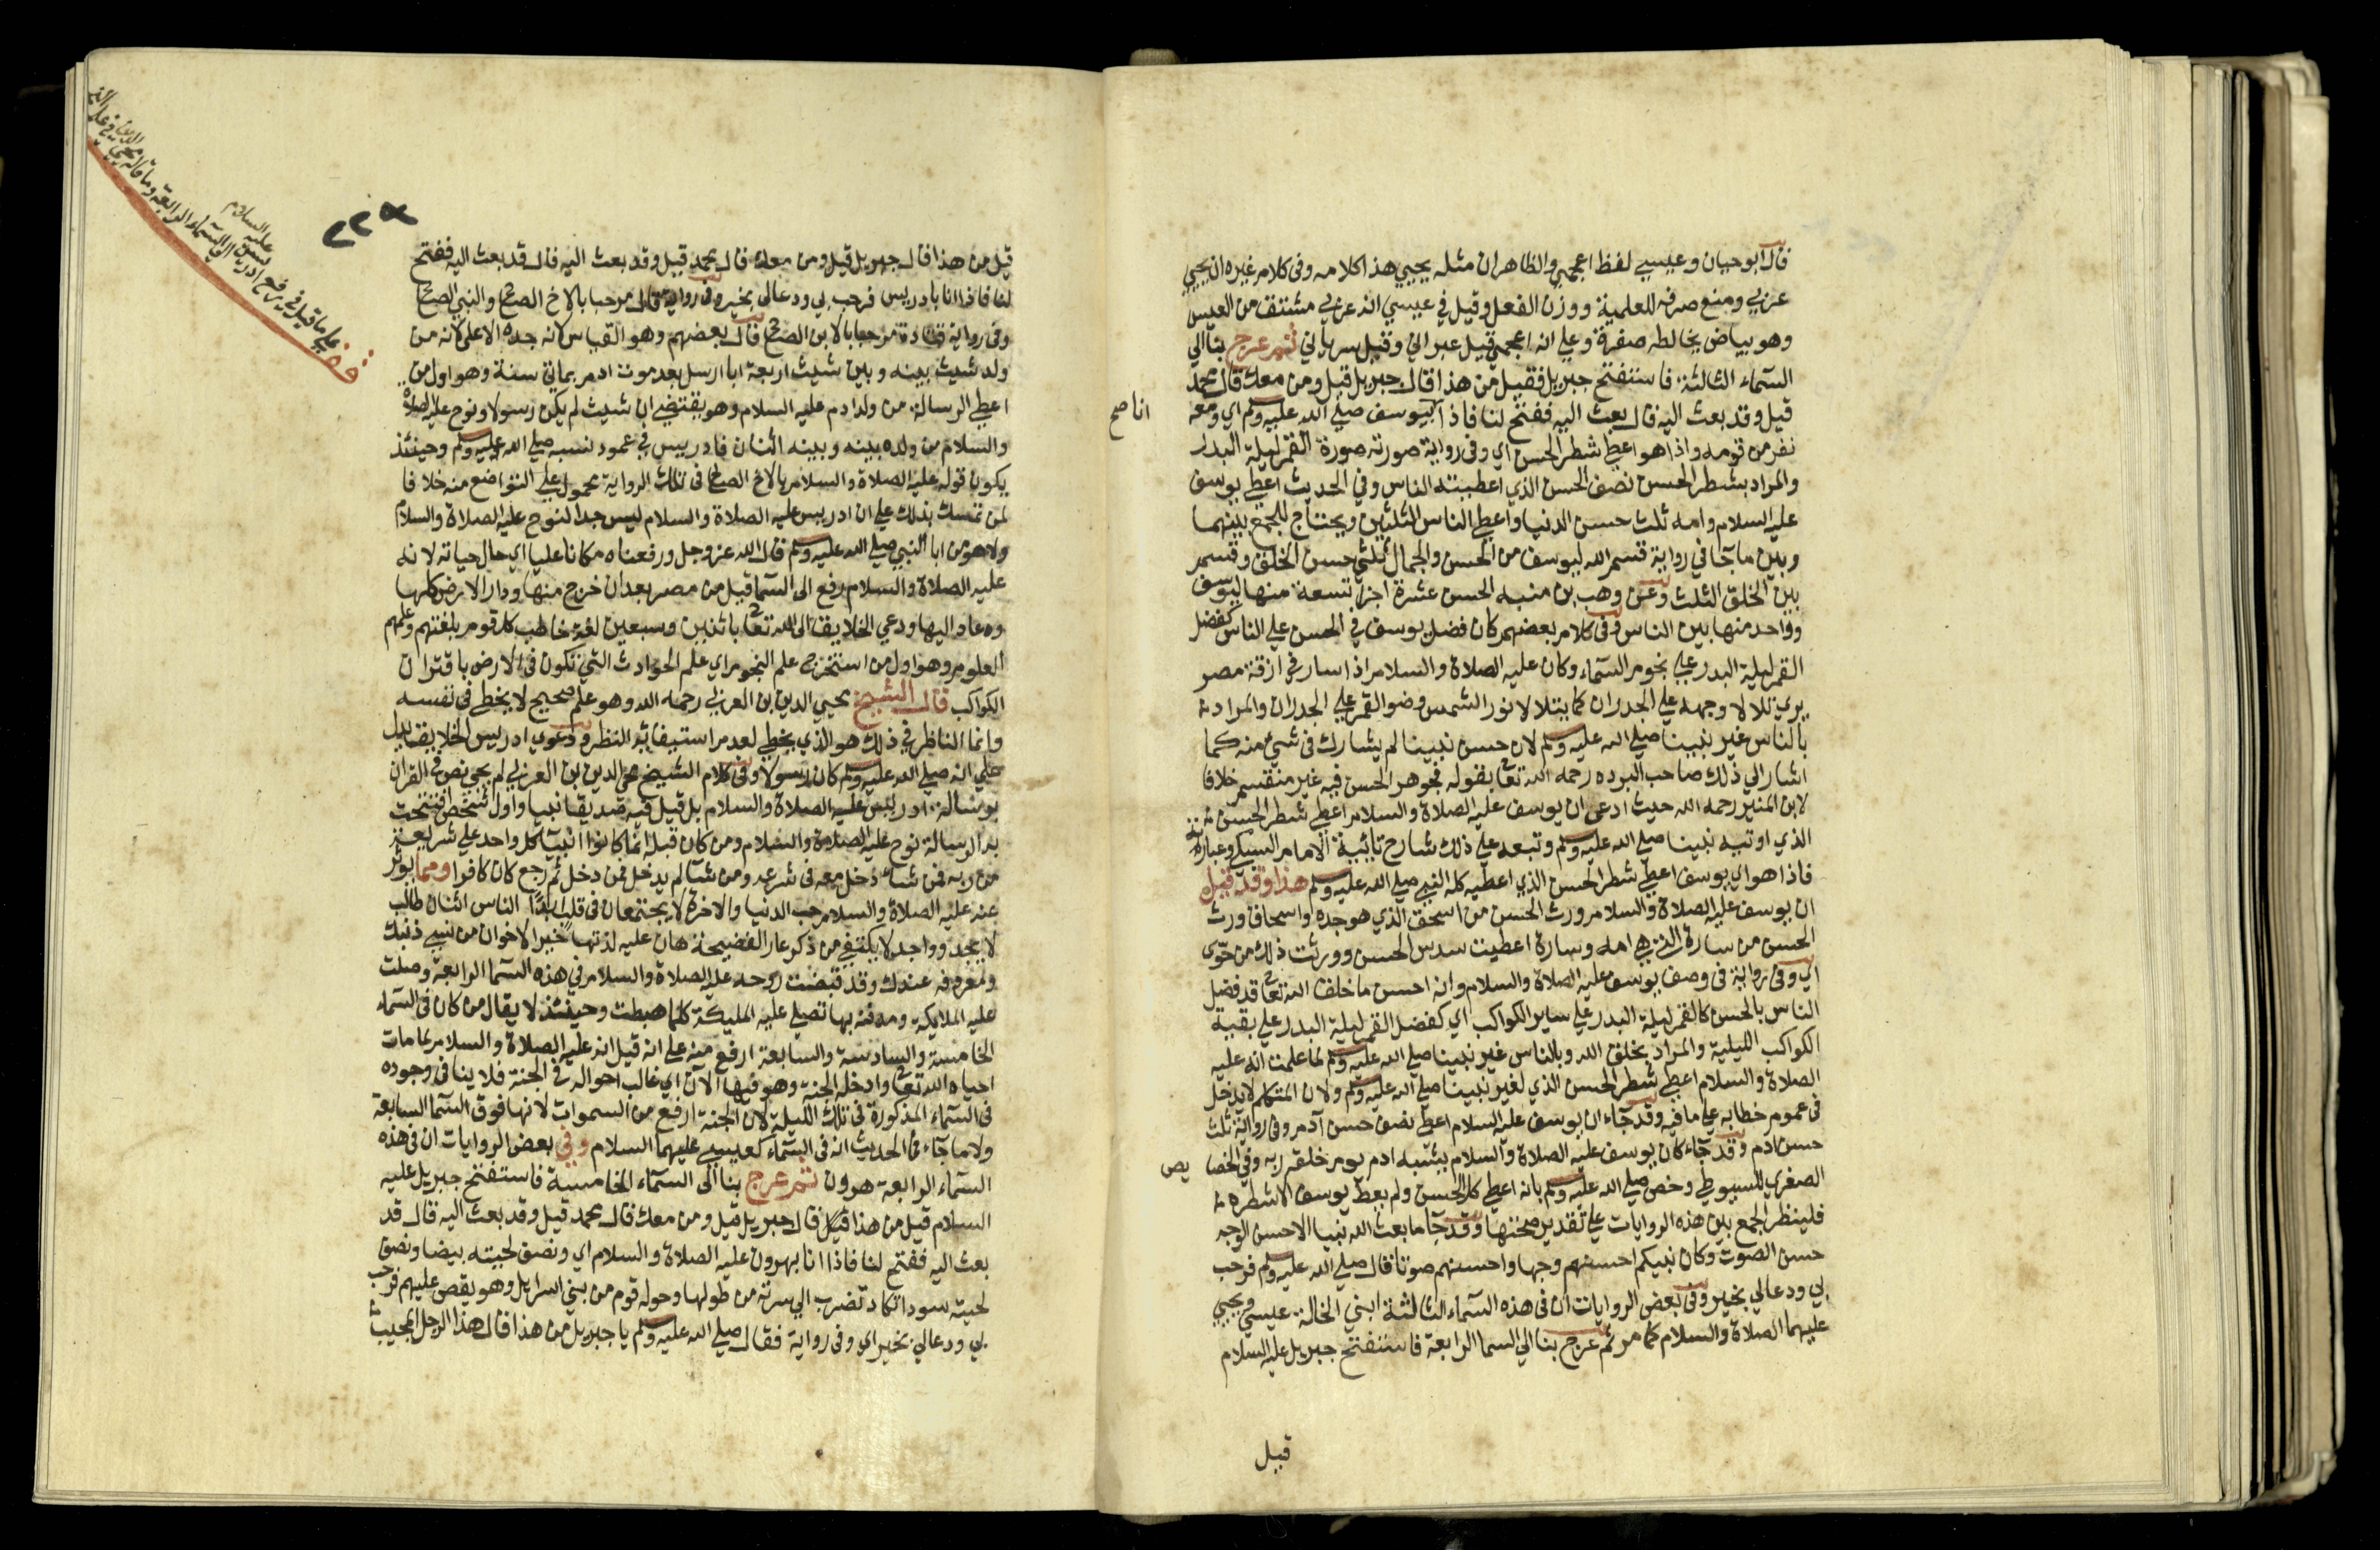 قال ابو حيان وعيسى لفظ اعجمي والظاهر ان مثله يحيى هذا كلامه وفى كلام غيره ان يحيى
عربي ومنع صرفه للعلمية ووزن الفعل وقيل في عيسى انه عربي مشتق من العيس
وهو بياض يخالطه صفرة وعلى انه اعجمي قيل عبراني وقيل سرياني ثم عرج بنا الى
السماء الثالثة فاستفتح جبريل فقيل من هذا قال جبريل قيل ومن معك قال محمد
قيل وقد بعث اليه قال بعث اليه ففتح لنا فاذا بيوسف صلى الله عليه وسلم اي ومعه
انا صح
نفر من قومه واذا هو اعطي شطر الحسن اي وفى رواية صورته صورة القمر ليلة البدر
والمراد بشطر الحسن نصف الحسن الذي اعطيته الناس وفي الحديث اعطي يوسف
عليه السلام وامه ثلث حسن الدنيا واعطي الناس الثلثين ويحتاج للجمع بينهما
وبين ما جا في رواية قسم الله ليوسف من الحسن والجمال ثلثي حسن الخلق وقسم
بين الخلق الثلث وعن وهب بن منبه الحسن عشرة اجزا تسعة منها ليوسف
وواحد منها بين الناس وفى كلام بعضهم كان فضل يوسف في الحسن على الناس كفضل
القمر ليلة البدر على نجوم السماء وكان عليه الصلاة والسلام اذا سار فى ازقة مصر
يرى تلالا وجهه على الجدران كما يتلالا نور الشمس وضو القمر على الجدران والمراد
بالناس غير نبينا صلى الله عليه وسلم لان حسن نبينا لم يشارك فى شيء منه كما
اشار الي ذلك صاحب البرده رحمه الله تعالى بقوله فجوهر الحسن فيه غير منقسم خلافا
لابن المنير رحمه الله حيث ادعى ان يوسف عليه الصلاة والسلام اعطي شطر الحسن
الذي اوتيه نبينا صلى الله عليه وسلم وتبعه على ذلك شارح تائية الامام السبكي وعبارته
فاذا هو اي يوسف اعطي شطر الحسن الذي اعطيه كله النبي صلى الله عليه وسلم هذا وقد قيل
ان يوسف عليه الصلاة والسلام ورث الحسن من اسحق الذي هو جده واسحاق ورث
الحسن من سارة التي هي امه وسارة اعطيت سدس الحسن وورثت ذلك من حوى
اي وفى رواية فى وصف يوسف عليه الصلاة والسلام وانه احسن ما خلق الله تعالى قد فضل
الناس بالحسن كالقمر ليلة البدر على ساير الكواكب اي كفضل القمر ليلة البدر على بقية
الكواكب الليلية والمراد بخلق الله وبالناس غير نبينا صلى الله عليه وسلم لما علمت انه عليه
الصلاة والسلام اعطي شطر الحسن الذي لغير نبينا صلى الله عليه وسلم ولان المتكلم لا يدخل
فى عموم خطابه على ما فيه وقد جاء ان يوسف عليه السلام اعطي نصف حسن آدم وفى رواية ثلث
حسن ادم وقد جاء كان يوسف عليه الصلاة والسلام يشبه ادم يوم خلقه ربه وفي الخصا
يص
الصغرى للسيوطي وخص صلى الله عليه وسلم بانه اعطي كل الحسن ولم يعط يوسف الا شطره
فلينظر الجمع بين هذه الروايات على تقدير صحتها وقد جا ما بعث الله نبيا الا حسن الوجه
حسن الصوت وكان نبيكم احسنهم وجها واحسنهم صوتا قال صلى الله عليه وسلم فرحب
بي ودعا لي بخير وفى بعض الروايات ان فى هذه السماء الثالثة ابني الخالة عيسى ويحيى
عليهما الصلاة والسلام كما مر ثم عرج بنا الي السما الرابعة فاستفتح جبريل عليه السلام
قيل
٢٢٥
قيل من هذا قال جبريل قيل ومن معك قال محمد قيل وقد بعث اليه قال قد بعث اليه ففتح
لنا فاذا انا بادريس فرحب بي ودعا لي بخير وفى رواية قال مرحبا بالاخ الصالح والنبي الصالح
وفى رواية قتادة مرحبا بالابن الصالح قال بعضهم وهو القياس لانه جده الاعلى لانه من
ولد شيث بينه وبين شيث اربعة ابا ارسل بعد موت ادم بمايتي سنة وهو اول من
اعطي الرسالة من ولد ادم عليه السلام وهو يقتضي ان شيث لم يكن رسولا ونوح عليه الصلاة
والسلام من ولده بينه وبينه اثنان فادريس في عمود نسبه صلى الله عليه وسلم وحينئذ
يكون قوله عليه الصلاة والسلام بالاخ الصالح فى تلك الرواية محمول على التواضع منه خلافا
لمن تمسك بذلك على ان ادريس عليه الصلاة والسلام ليس جدا لنوح عليه الصلاة والسلام
ولا هو من ابا النبي صلى الله عليه وسلم قال الله عز وجل ورفعناه مكانا عليا اي حال حياته لانه
عليه الصلاة والسلام رفع الى السما قيل من مصر بعد ان خرج منها ودار الارض كلها
وعاد اليها ودعي الخلايق الى الله تعالى باثنين وسبعين لغة خاطب كل قوم بلغتهم وعلمهم
العلوم وهو اول من استخرج علم النجوم اي علم الحوادث التي تكون فى الارض باقتران
الكواكب قال الشيخ محيي الدين بن العربي رحمه الله وهو علم صحيح لا يخطي فى نفسه
وانما الناظر في ذلك هو الذي يخطي لعدم استيفائه النظر ودعوي ادريس الخلايق يدل
على انه صلى الله عليه وسلم كان رسولا وفى كلام الشيخ محي الدين بن العربي لم يجى نص فى القران
برسالة ادريس عليه الصلاة والسلام بل قيل فيه صديقا نبيا واول شخص افتتحت
به الرسالة نوح عليه الصلاة والسلام ومن كان قبله انما كانوا انبيا كل واحد على شريعة
من ربه فمن شا دخل معه فى شرعه ومن شا لم يدخل فمن دخل ثم رجع كان كافرا ومما يوثر
عنه عليه الصلاة والسلام حب الدنيا والاخرة لا يجتمعان فى قلب ابدا الناس اثنان طالب
لا يجد وواجد لا يكتفي من ذكر عار الفضيحة هان عليه لذتها خير الاخوان من نسي ذنبك
ومعروفه عندك وقد قبضت روحه عليه الصلاة والسلام في هذه السما الرابعة وصلت
عليه الملايكة ومدفنه بها تصلي عليه المليكة كلما هبطت وحينئذ لا يقال من كان فى السماء
الخامسة والسادسة والسابعة ارفع منه على انه قيل انه عليه الصلاة والسلام لما مات
احياه الله تعالى وادخله الجنة وهو فيها الان اي غالب احواله في الجنة فلا ينافى وجوده
فى السماء المذكورة فى تلك الليلة لان الجنة ارفع من السموات لانها فوق السما السابعة
ولا ما جاء فى الحديث انه فى السماء كعيسى عليهما السلام وفي بعض الروايات ان فى هذه
السماء الرابعة هرون ثم عرج بنا الى السماء الخامسة فاستفتح جبريل عليه
السلام قيل من هذا قال جبريل قيل ومن معك قال محمد قيل وقد بعث اليه قال قد
بعث اليه ففتح لنا فاذا انا بهرون عليه الصلاة والسلام اي ونصف لحيته بيضا ونصف
لحيته سودا تكاد تضرب الي سرته من طولها وحوله قوم من بني اسرايل وهو يقص عليهم فرحب
بي ودعا لي بخير اي وفى رواية فقال صلى الله عليه وسلم يا جبريل من هذا قال هذا الرجل المحبب
قف
على ما قيل في رفع ادريس الى السماء الرابعة وما قاله محيي الدين في علم
عليه السلام